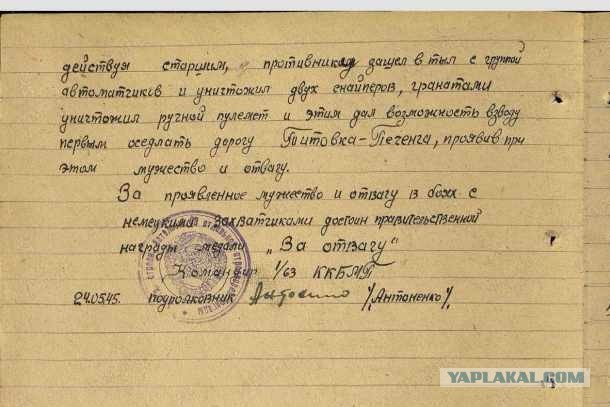 действуя старшим, противника зашел в тыл с группой
автоматчиков и уничтожил двух снайперов, гранатами
уничтожил ручной пулемет и этим дал возможность взводу
первым оседлать дорогу Титовка-Печенга, проявив при
этом мужество и отвагу.
За проявленное мужество и отвагу в боях с
немецкими захватчиками достоин правительственной
награды медали „За отвагу“
Командир 1/63 ККБМП
24.05.45. подполковник /Антоненко/
YAPLAKAL.COM